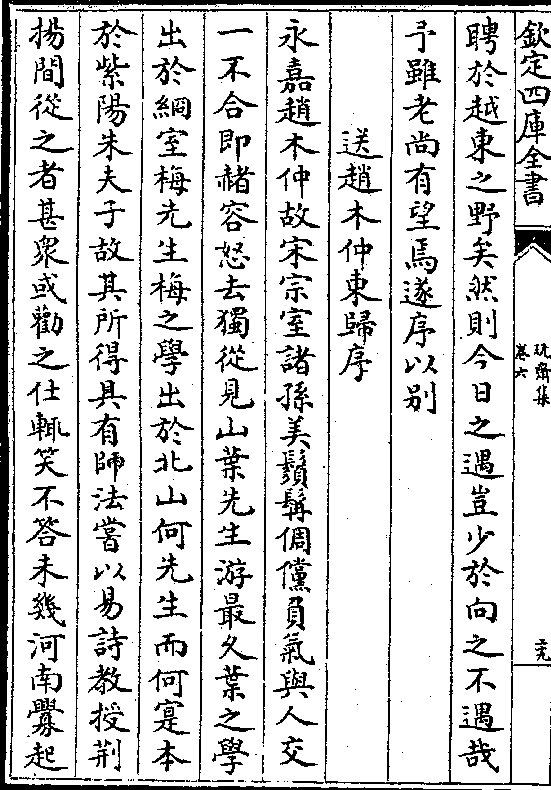 欽定四庫全書
玩齋集
卷六
二九
聘於越東之野矣然則今日之遇豈少於向之不遇哉
予雖老尚有望焉遂序以别
送趙木仲東歸序
永嘉趙木仲故宋宗室諸孫美鬚髯倜儻負氣與人交
一不合即赭容怒去獨從見山葉先生游最久葉之學
出於綱室梅先生梅之學出於北山何先生而何寔本
於紫陽朱夫子故其所得具有師法嘗以易詩教授荆
揚間從之者甚衆或勸之仕輒笑不答未幾河南釁起